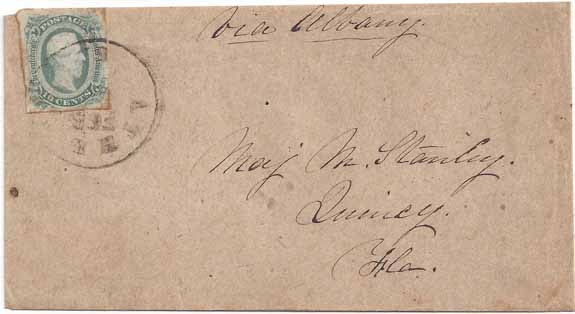 via Albany.
POSTAGE
10 CENTS
Maj M. Stanley.
Quincy.
Fla.